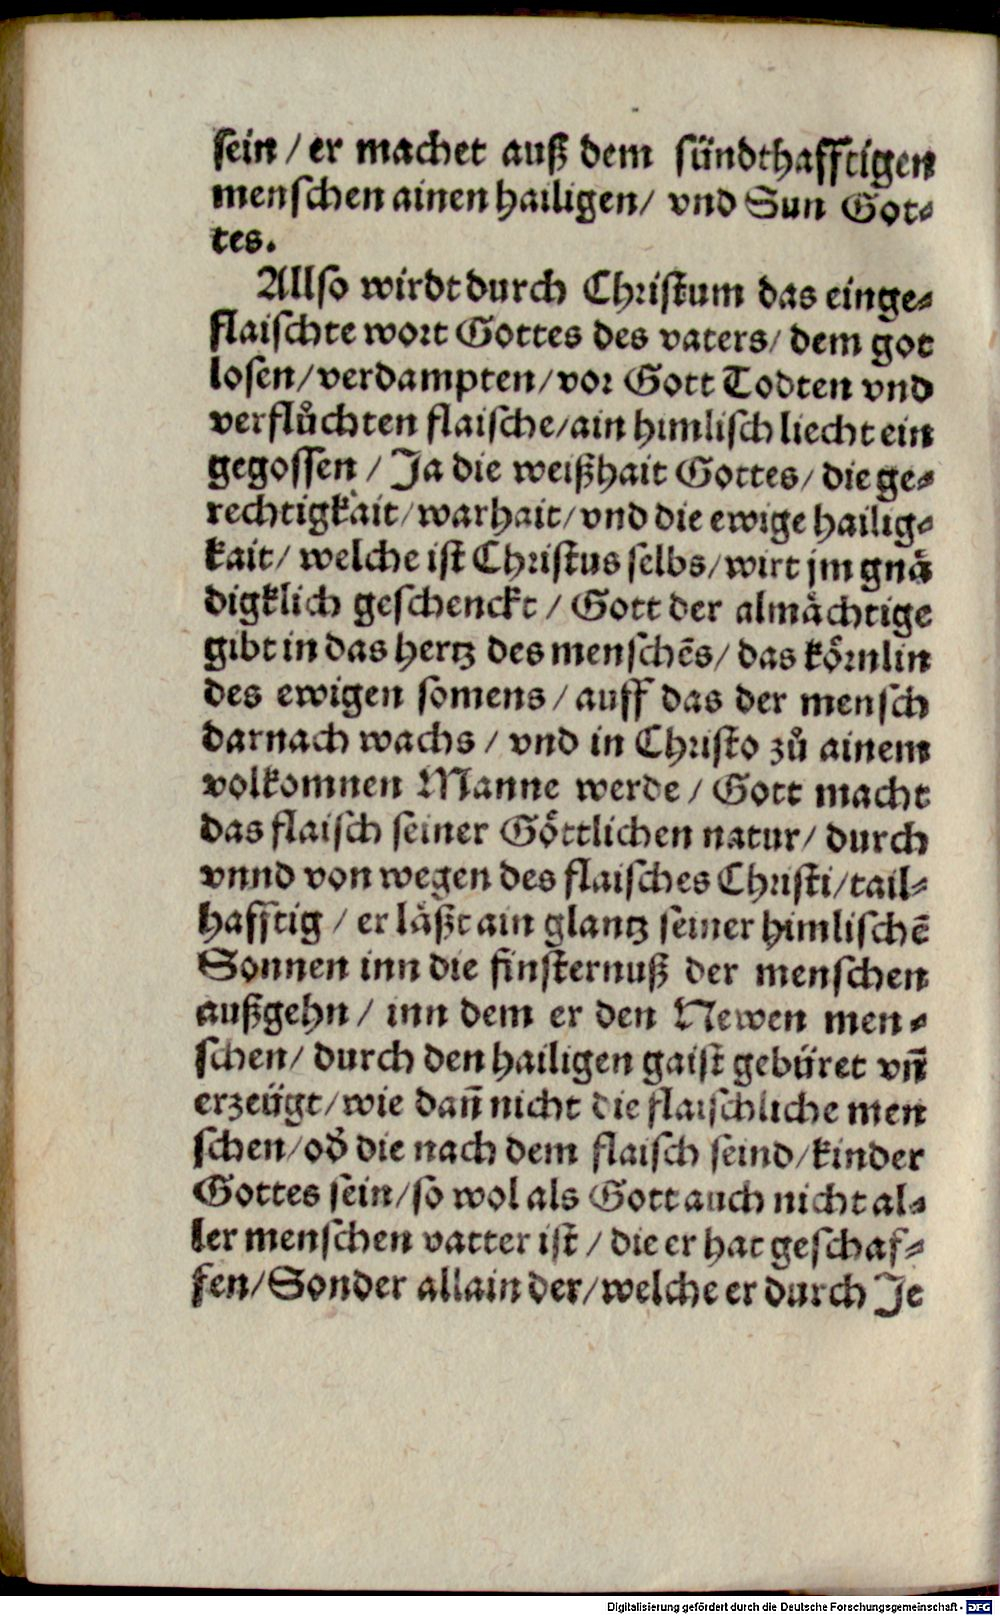 sein / er machet auß dem sündthafftigen
menschen ainen hailigen / vnd Sun Got⸗
tes.
Allso wirdt durch Christum das einge⸗
flaischte wort Gottes des vaters / dem got
losen / verdampten / vor Gott Todten vnd
verflůchten flaische / ain himlisch liecht ein
gegossen / Ja die weißhait Gottes / die ge⸗
rechtigkait / warhait / vnd die ewige hailig⸗
kait / welche ist Christus selbs / wirt jm gnå
digklich geschenckt / Gott der almåchtige
gibt in das hertz des menschēs / das kőrnlin
des ewigen somens / auff das der mensch
darnach wachs / vnd in Christo zů ainem
volkomnen Manne werde / Gott macht
das flaisch seiner Gőttlichen natur / durch
vnnd von wegen des flaisches Christi / tail⸗
hafftig / er låßt ain glantz seiner himlischē
Sonnen inn die finsternuß der menschen
außgehn / inn dem er den Newen men⸗
schen / durch den hailigen gaist gebüret vñ
erzeügt / wie dañ nicht die flaischliche men
schen / od̕ die nach dem flaisch seind / kinder
Gottes sein / so wol als Gott auch nicht al⸗
ler menschen vatter ist / die er hat geschaf⸗
fen / Sonder allain der / welche er durch Je
Digitalisierung gefördert durch die Deutsche Forschungsgemeinschaft - DFG